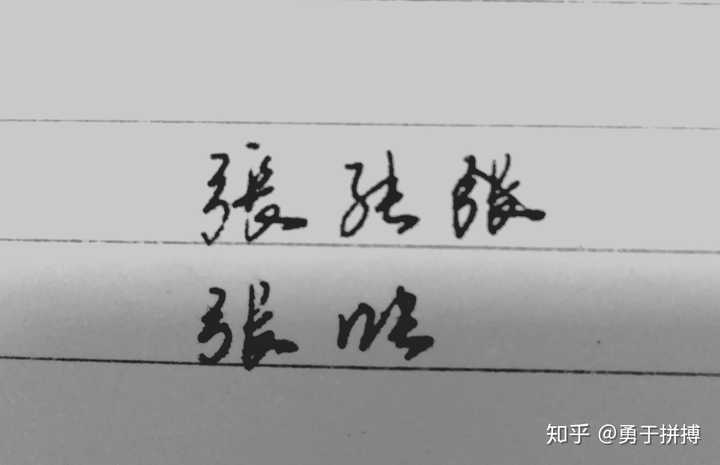 張张張
張张
知乎 @勇于拼搏